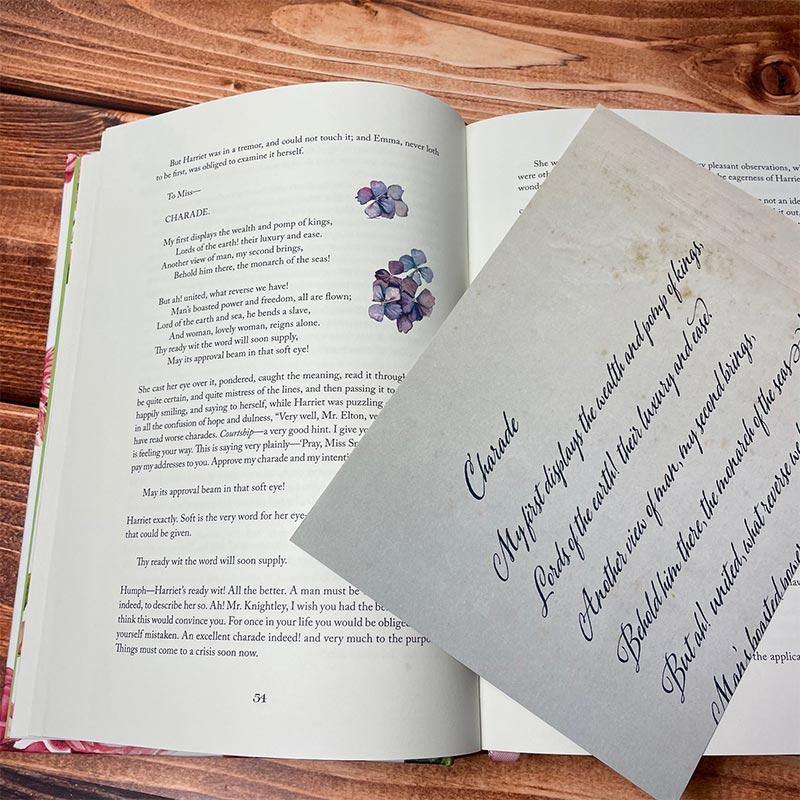 But Harriet was in a tremor, and could not touch it; and Emma, never loth
to be first, was obliged to examine it herself.
To Miss—
CHARADE.
My first displays the wealth and pomp of kings,
Lords of the earth! their luxury and ease.
Another view of man, my second brings,
Behold him there, the monarch of the seas!
But ah! united, what reverse we have!
Man's boasted power and freedom, all are flown;
Lord of the earth and sea, he bends a slave,
And woman, lovely woman, reigns alone.
Thy ready wit the word will soon supply,
May its approval beam in that soft eye!
She cast her eye over it, pondered, caught the meaning, read it through
be quite certain, and quite mistress of the lines, and then passing it to
happily smiling, and saying to herself, while Harriet was puzzling
in all the confusion of hope and dulness, "Very well, Mr. Elton, ve
have read worse charades. Courtship—a very good hint. I give yo
is feeling your way. This is saying very plainly—'Pray, Miss Sm
pay my addresses to you. Approve my charade and my intenti
May its approval beam in that soft eye!
Harriet exactly. Soft is the very word for her eye—
that could be given.
Thy ready wit the word will soon supply.
Humph—Harriet's ready wit! All the better. A man must be
indeed, to describe her so. Ah! Mr. Knightley, I wish you had the be
think this would convince you. For once in your life you would be oblige
yourself mistaken. An excellent charade indeed! and very much to the purpo
Things must come to a crisis soon now.
54
She w
ry pleasant observations, wh
were oth
the eagerness of Harrie
wond
not an ide
it out,
the applica
Charade
My first displays the wealth and pomp of kings,
Lords of the earth! their luxury and ease.
Another view of man, my second brings,
Behold him there, the monarch of the seas
But ah! united, what reverse w
Man's boasted powe